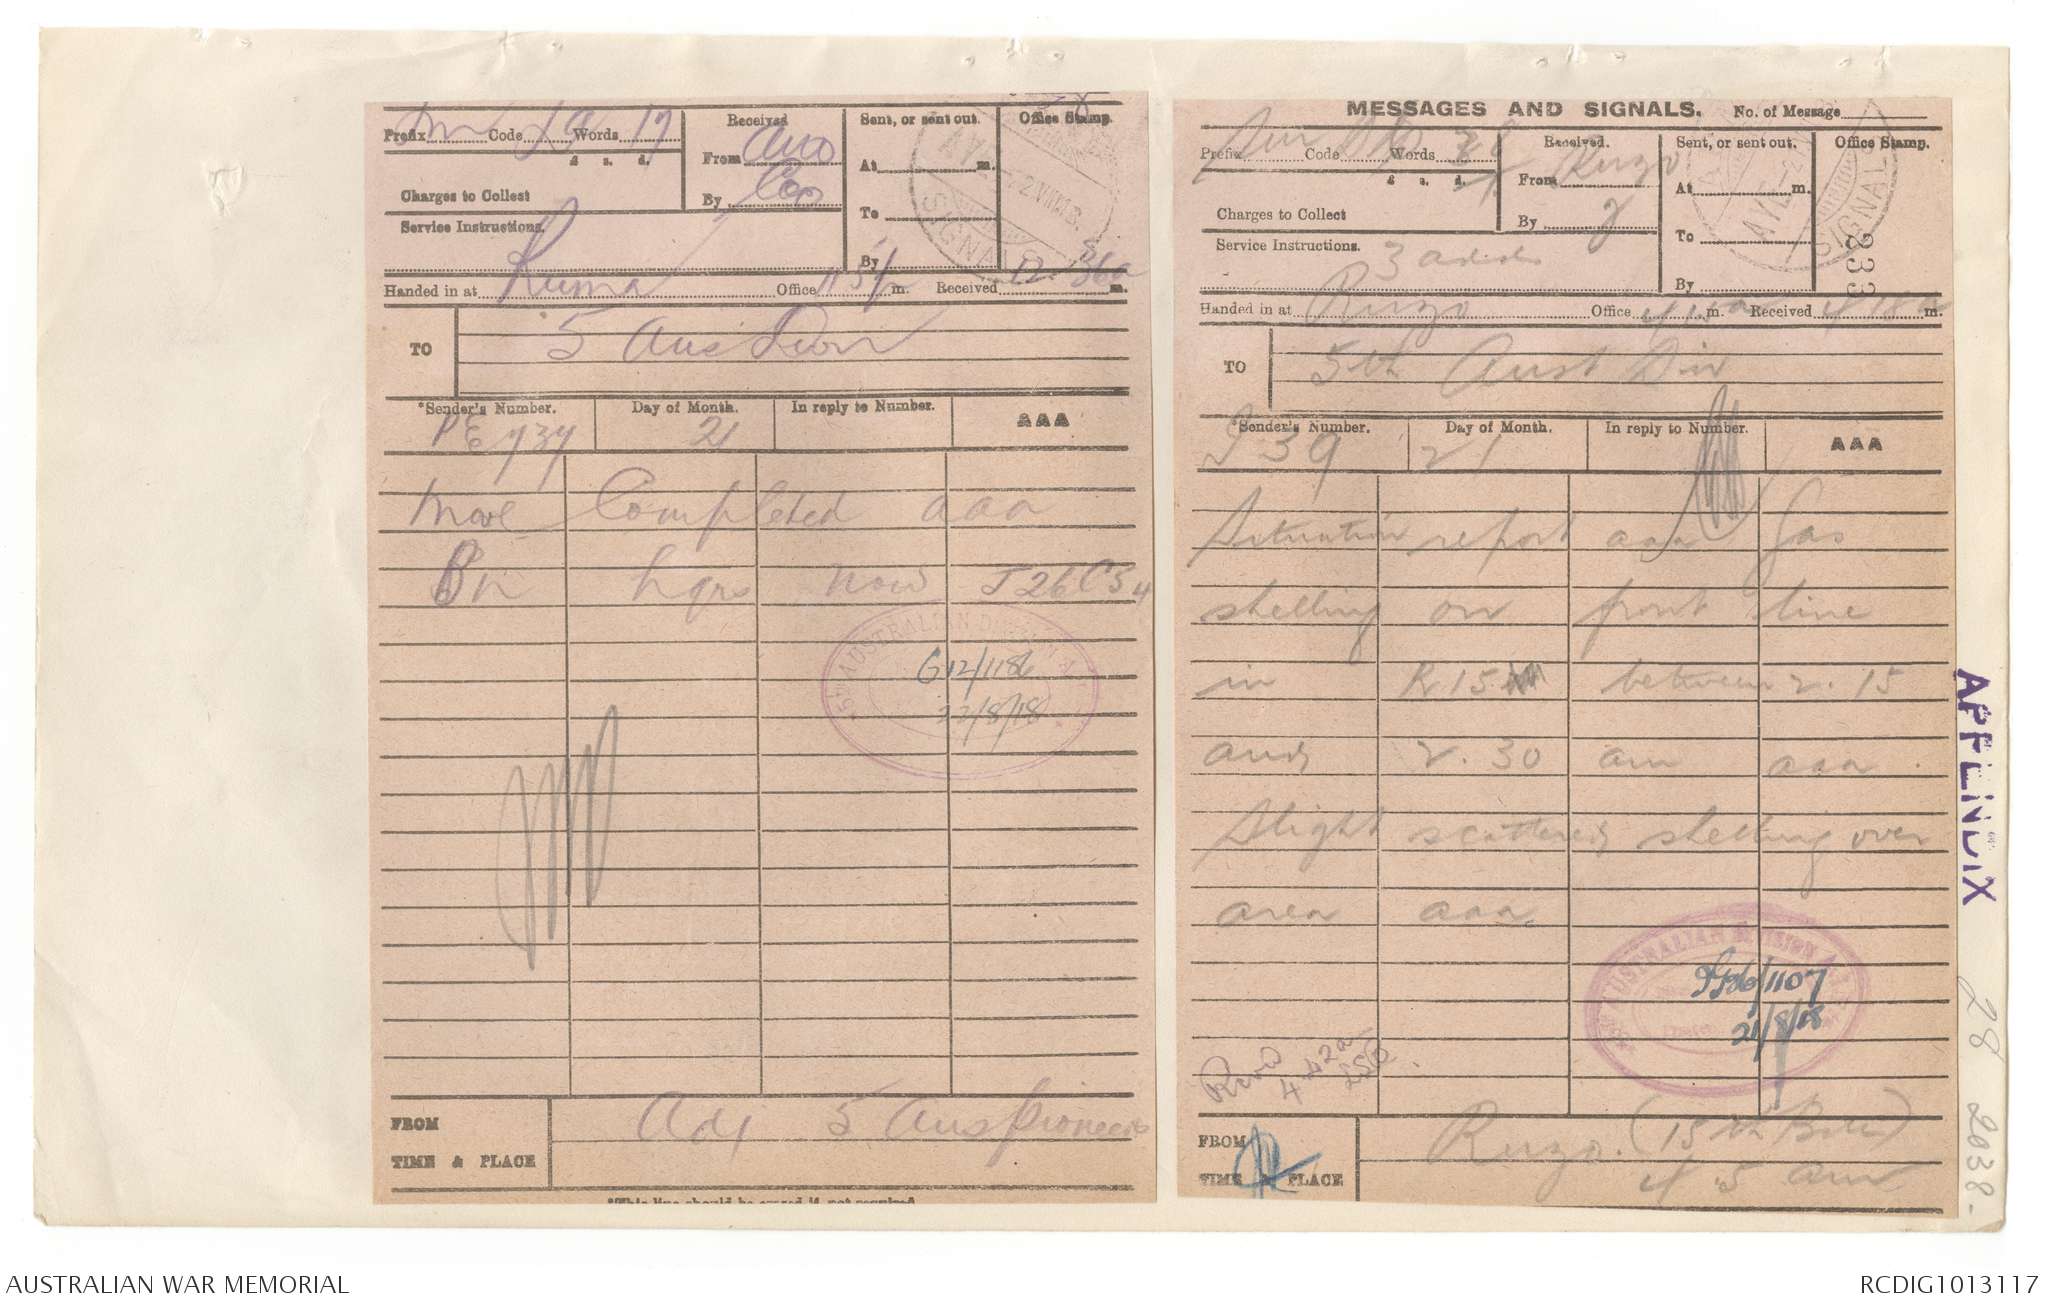 Prefix Code Words 17
£ s. d.
Charges to Collect
Service Instructions.
Received
From
By
Sent, or sent out.
At m.
To
By
Office Stamp.
SIGNALS
Handed in at Ruma Office 11 51 m. Received 12 36a m.
TO 5 Aus Divn
*Sender's Number. Day of Month. In reply to Number. AAA
21
Move Completed aaa
Bn hqrs now J26C34
5TH AUSTRALIAN DIVISION
G12/1186
22/8/18
FROM Adj 5 Aus Pioneers
TIME & PLACE
*This line should be erased if not required.
MESSAGES AND SIGNALS. No. of Message
Prefix Code Words
£ s. d.
Charges to Collect
Service Instructions.
3 adds
Received.
From Ruzo
By
Sent, or sent out.
At m.
To
By
Office Stamp.
SIGNALS
233
Handed in at Ruzo Office 4 15 a m. Received 4 18 a m.
TO 5th Aust Div
*Sender's Number. Day of Month. In reply to Number. AAA
I 39 21
Situation report aaa Gas
shelling on front line
in R.15 between 2.15
and 2.30 am aaa
Slight scattered shelling over
area aaa
AUSTRALIAN DIVISION
/1107
21/8/18
4.42a
FROM Ruzo. (15th Battn)
TIME & PLACE 4.5 am
APPENDIX
28 2038-
AUSTRALIAN WAR MEMORIAL
RCDIG1013117